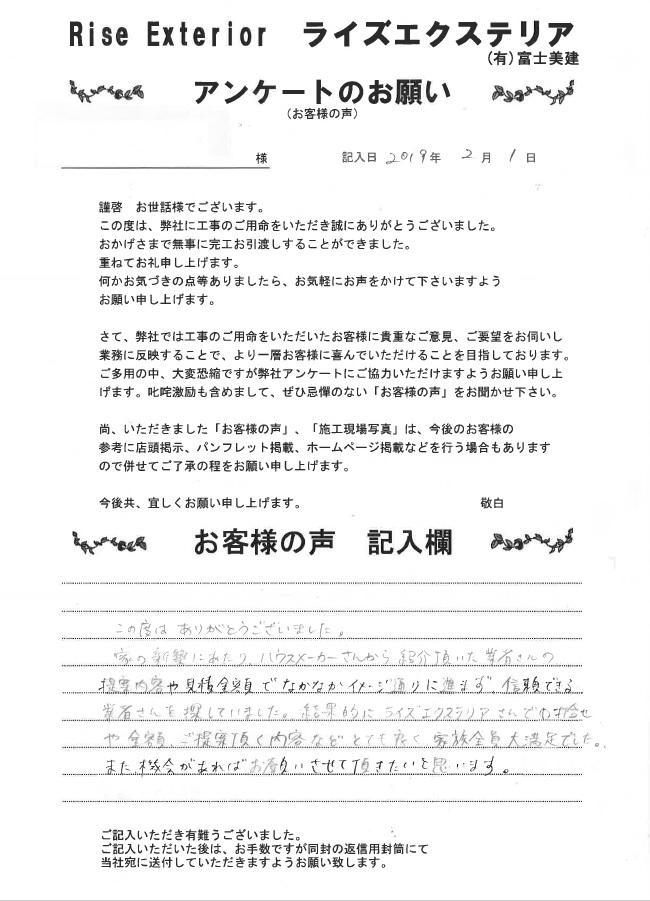 Rise Exterior ライズエクステリア
(有)富士美建
アンケートのお願い
(お客様の声)
様 記入日 2019年 2月 1日
謹啓 お世話様でございます。
この度は、弊社に工事のご用命をいただき誠にありがとうございました。
おかげさまで無事に完工お引渡しすることができました。
重ねてお礼申し上げます。
何かお気づきの点等ありましたら、お気軽にお声をかけて下さいますよう
お願い申し上げます。
さて、弊社では工事のご用命をいただいたお客様に貴重なご意見、ご要望をお伺いし
業務に反映することで、より一層お客様に喜んでいただけることを目指しております。
ご多用の中、大変恐縮ですが弊社アンケートにご協力いただけますようお願い申し上
げます。叱咤激励も含めまして、ぜひ忌憚のない「お客様の声」をお聞かせ下さい。
尚、いただきました「お客様の声」、「施工現場写真」は、今後のお客様の
参考に店頭掲示、パンフレット掲載、ホームページ掲載などを行う場合もあります
ので併せてご了承の程をお願い申し上げます。
今後共、宜しくお願い申し上げます。 敬白
お客様の声 記入欄
この度は ありがとうございました。
家の新築にあたり、ハウスメーカーさんから 紹介頂いた業者さんの
提案内容や見積金額で なかなかイメージ通りに進まず、信頼できる
業者さんを探していました。結果的に ライズエクステリアさんで
や金額、ご提案頂く内容など とても良く 家族全員大満足でした。
また、機会があればお願いさせて頂きたいと思います。
ご記入いただき有難うございました。
ご記入いただいた後は、お手数ですが同封の返信用封筒にて
当社宛に送付していただきますようお願い致します。